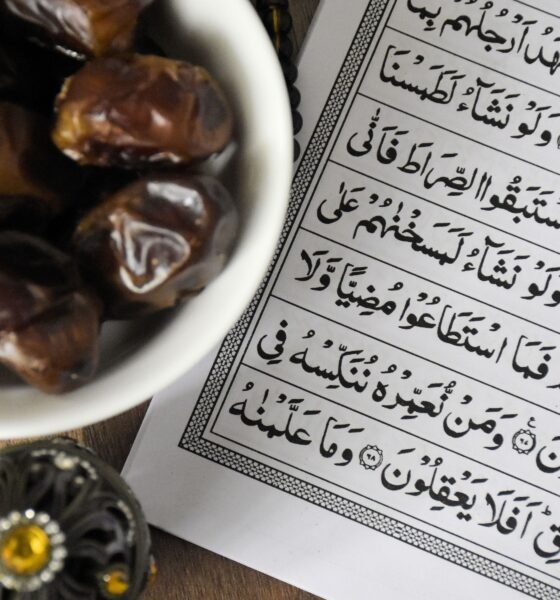 اَرْجُلُهُمْ بِمَا
وَلَوْ نَشَآءُ لَطَمَسْنَا
فَاسْتَبَقُوا الصِّرَاطَ فَاَنّٰى
وَلَوْ نَشَآءُ لَمَسَخْنٰهُمْ عَلٰى
فَمَا اسْتَطَاعُوْا مُضِيًّا وَّلَا
۝٦٧ وَمَنْ نُّعَمِّرْهُ نُنَكِّسْهُ فِى
اَفَلَا يَعْقِلُوْنَ ۝٦٨ وَمَا عَلَّمْنٰهُ